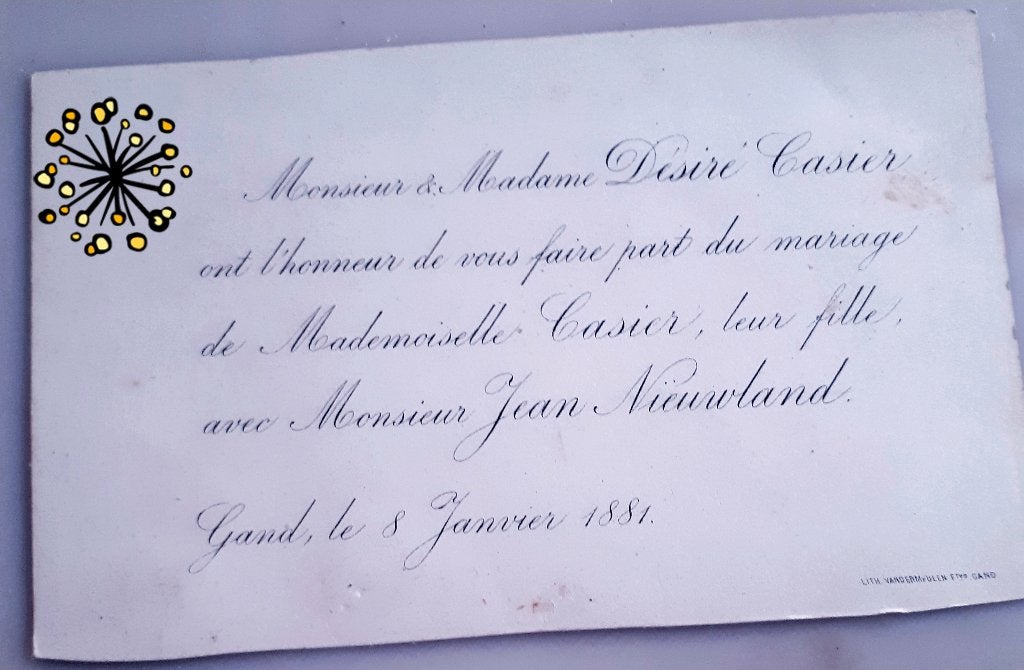 Monsieur & Madame Désiré Casier
ont l'honneur de vous faire part du mariage
de Mademoiselle Casier, leur fille,
avec Monsieur Jean Niëuwland.
Gand, le 8 Janvier 1881.
LITH. VANDERMEULEN Frères GAND